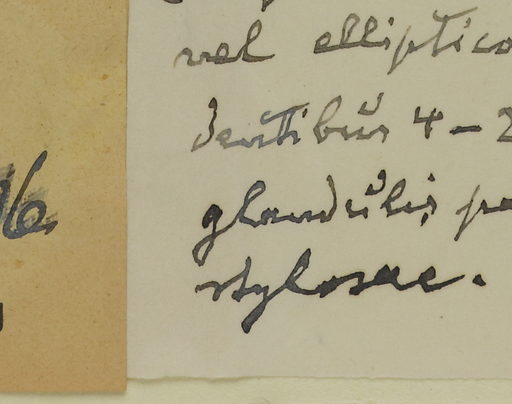 vel elliptico
dentibus 4-2
glandulis pe
stylosae.
96